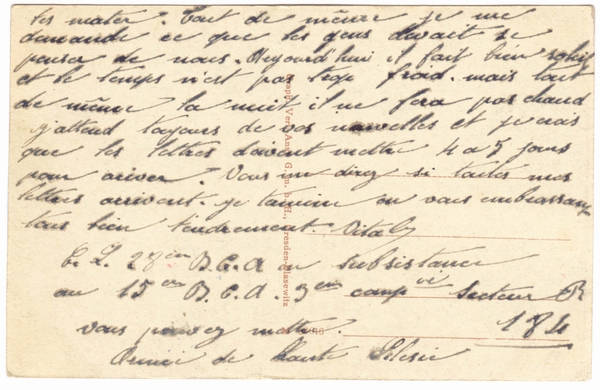 les mater. Tout de même je me
demande ce que les gens devait se
penser de nous. Aujourd'hui il fait bien soleil
et le temps n'est pas trop froid. mais tout
de même la nuit il ne fera pas chaud
j'attend toujours de vos nouvelles et je crois
que les lettres doivent mettre 4 a 5 jours
pour arriver. Vous me direz si toutes mes
lettres arrivent. je termine en vous embrassant
tous bien tendrement. Vital
E. L. 27èm B.C.A en subsistance
au 15em B.C.A. 3em comp ie Secteur
184
vous pouvez mettre.
Armée de Haute Silésie
Dresden-Blasewitz